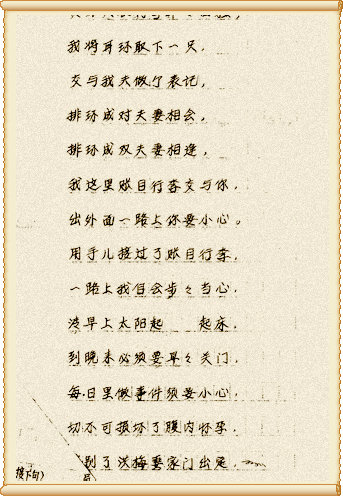 我将耳环取下一只，
交与我夫做个表记，
排环成对夫妻相会，
排环成双夫妻相逢，
我这里账目行李交与你，
出外面一路上你要小心。
用手儿接过了账目行李，
一路上我自会步々当心，
清早上太阳起　　起床，
到晚来必须要早々关门，
每日里做事件须要小心，
切不可损坏了腹内怀孕，
别了 梅妻家门出
接下句）